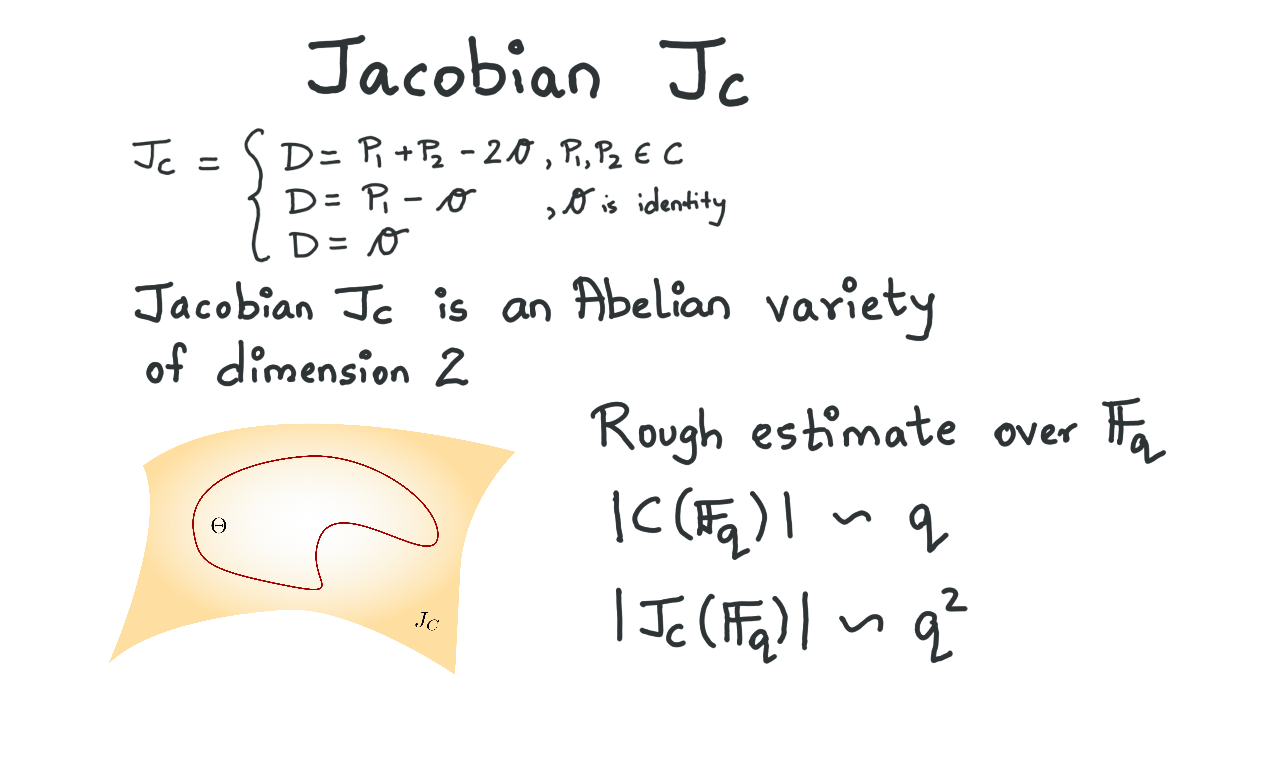 Jacobian J_C
J_C = { D = P₁ + P₂ - 2𝒪, P₁, P₂ ∈ C
D = P₁ - 𝒪 , 𝒪 is identity
D = 𝒪
Jacobian J_C is an Abelian variety
of dimension 2
Rough estimate over 𝔽_q
|C(𝔽_q)| ~ q
|J_C(𝔽_q)| ~ q²
Θ
J_C